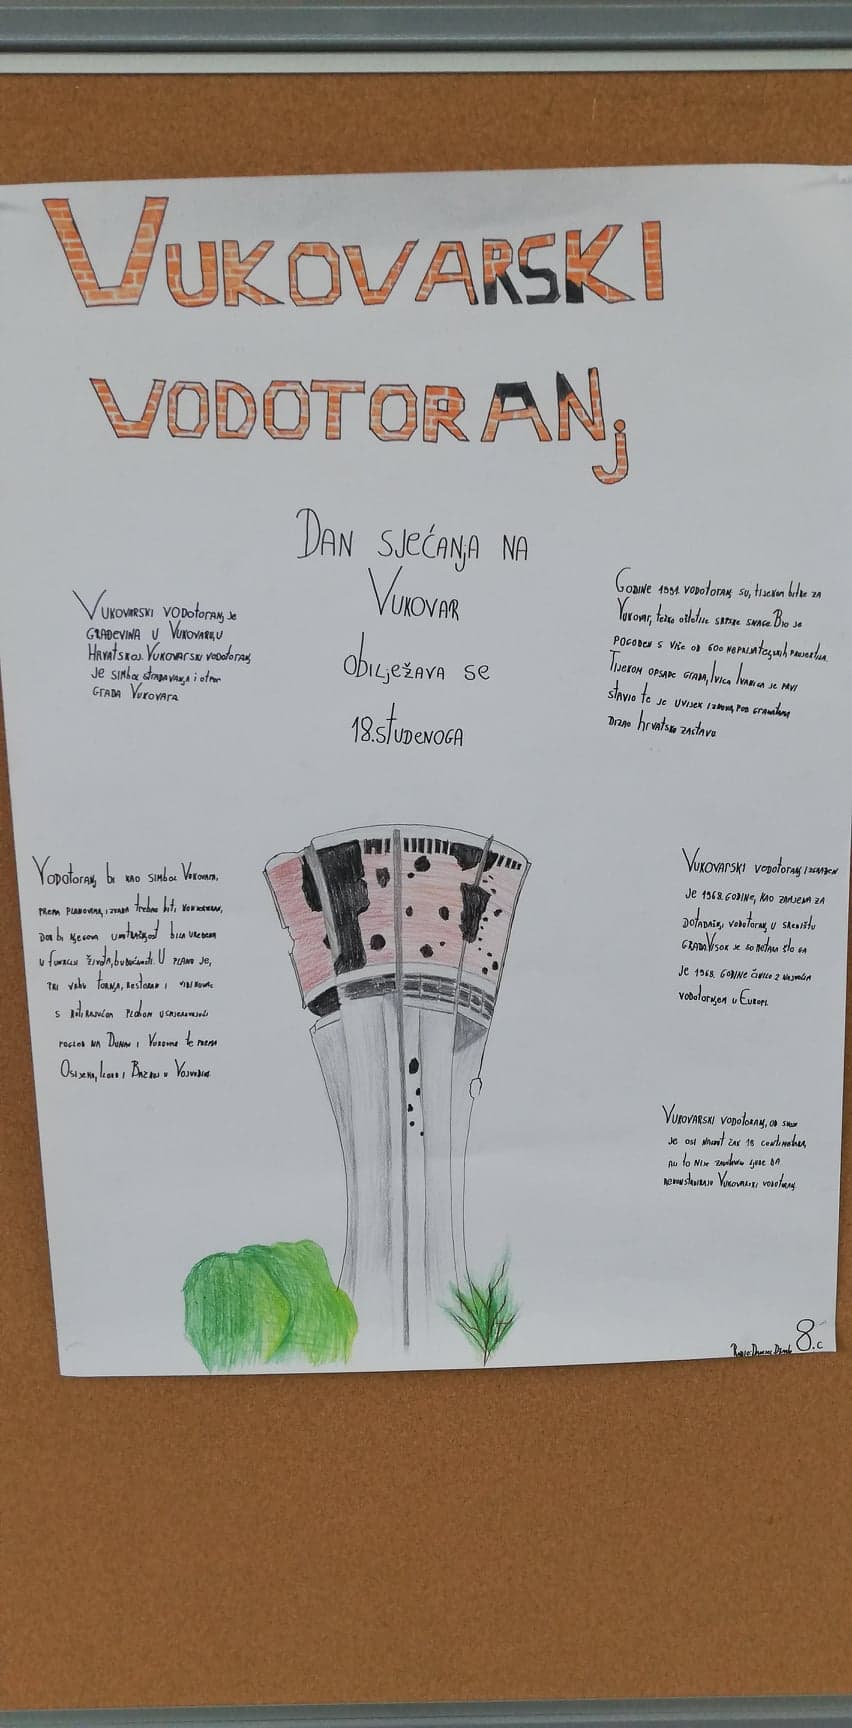 VUKOVARSKI
VODOTORANj
DAN SJEĆANJA NA
VUKOVAR
obILJEŽAVA SE
18. STUDENOGA
VUKOVARSKI VODOTORANJ JE
GRAĐEVINA U VUKOVARU, U
HRVATSKOJ. VUKOVARSKI VODOTORANJ
JE SIMBOL STRADAVANJA I
GRADA VUKOVARA
GODINE 1991. VODOTORANJ SU, TIJEKOM BITKE ZA
VUKOVAR, TEŠKO OŠTETILE SRPSKE SNAGE. BIO JE
POGOĐEN S VIŠE OD 600 NEPRIJATELJSKIH PROJEKTILA.
TIJEKOM OPSADE GRADA, IVICA IVANIKA JE PRVI
STAVIO TE JE UVIJEK IZNOVA, POD GRANATAMA
DRŽAO HRVATSKU ZASTAVU
VODOTORANJ BI KAO SIMBOL VUKOVARA,
PREMA PLANOVIMA, IZVANA TREBAO BITI
DOK BI NJEGOVA UNUTRAŠNJOST BILA UREĐENA
U FUNKCIJI ŽIVOTA, BUDUĆNOSTI. U PLANU JE,
PRI VRHU TORNJA, RESTORAN I VIDIKOVAC
S ROTIRAJUĆOM PLOHOM
POGLED NA DUNAV I VUKOVAR TE PREMA
OSIJEKU, ILOKU I U VOJVODINI
VUKOVARSKI VODOTORANJ IZGRAĐEN
JE 1968. GODINE, KAO ZAMJENA ZA
DOTADAŠNJI VODOTORANJ U SREDIŠTU
GRADA. VISOK JE 50 METARA ŠTO GA
JE 1968. GODINE ČINILO 2 NAJVEĆIM
VODOTORNJEM U EUROPI.
VUKOVARSKI VODOTORANJ, OD
JE OSI NAGNUT ČAK 18 CENTIMETARA,
ALI TO NIJE LJUDE DA
VUKOVARSKI VODOTORANJ
8.c